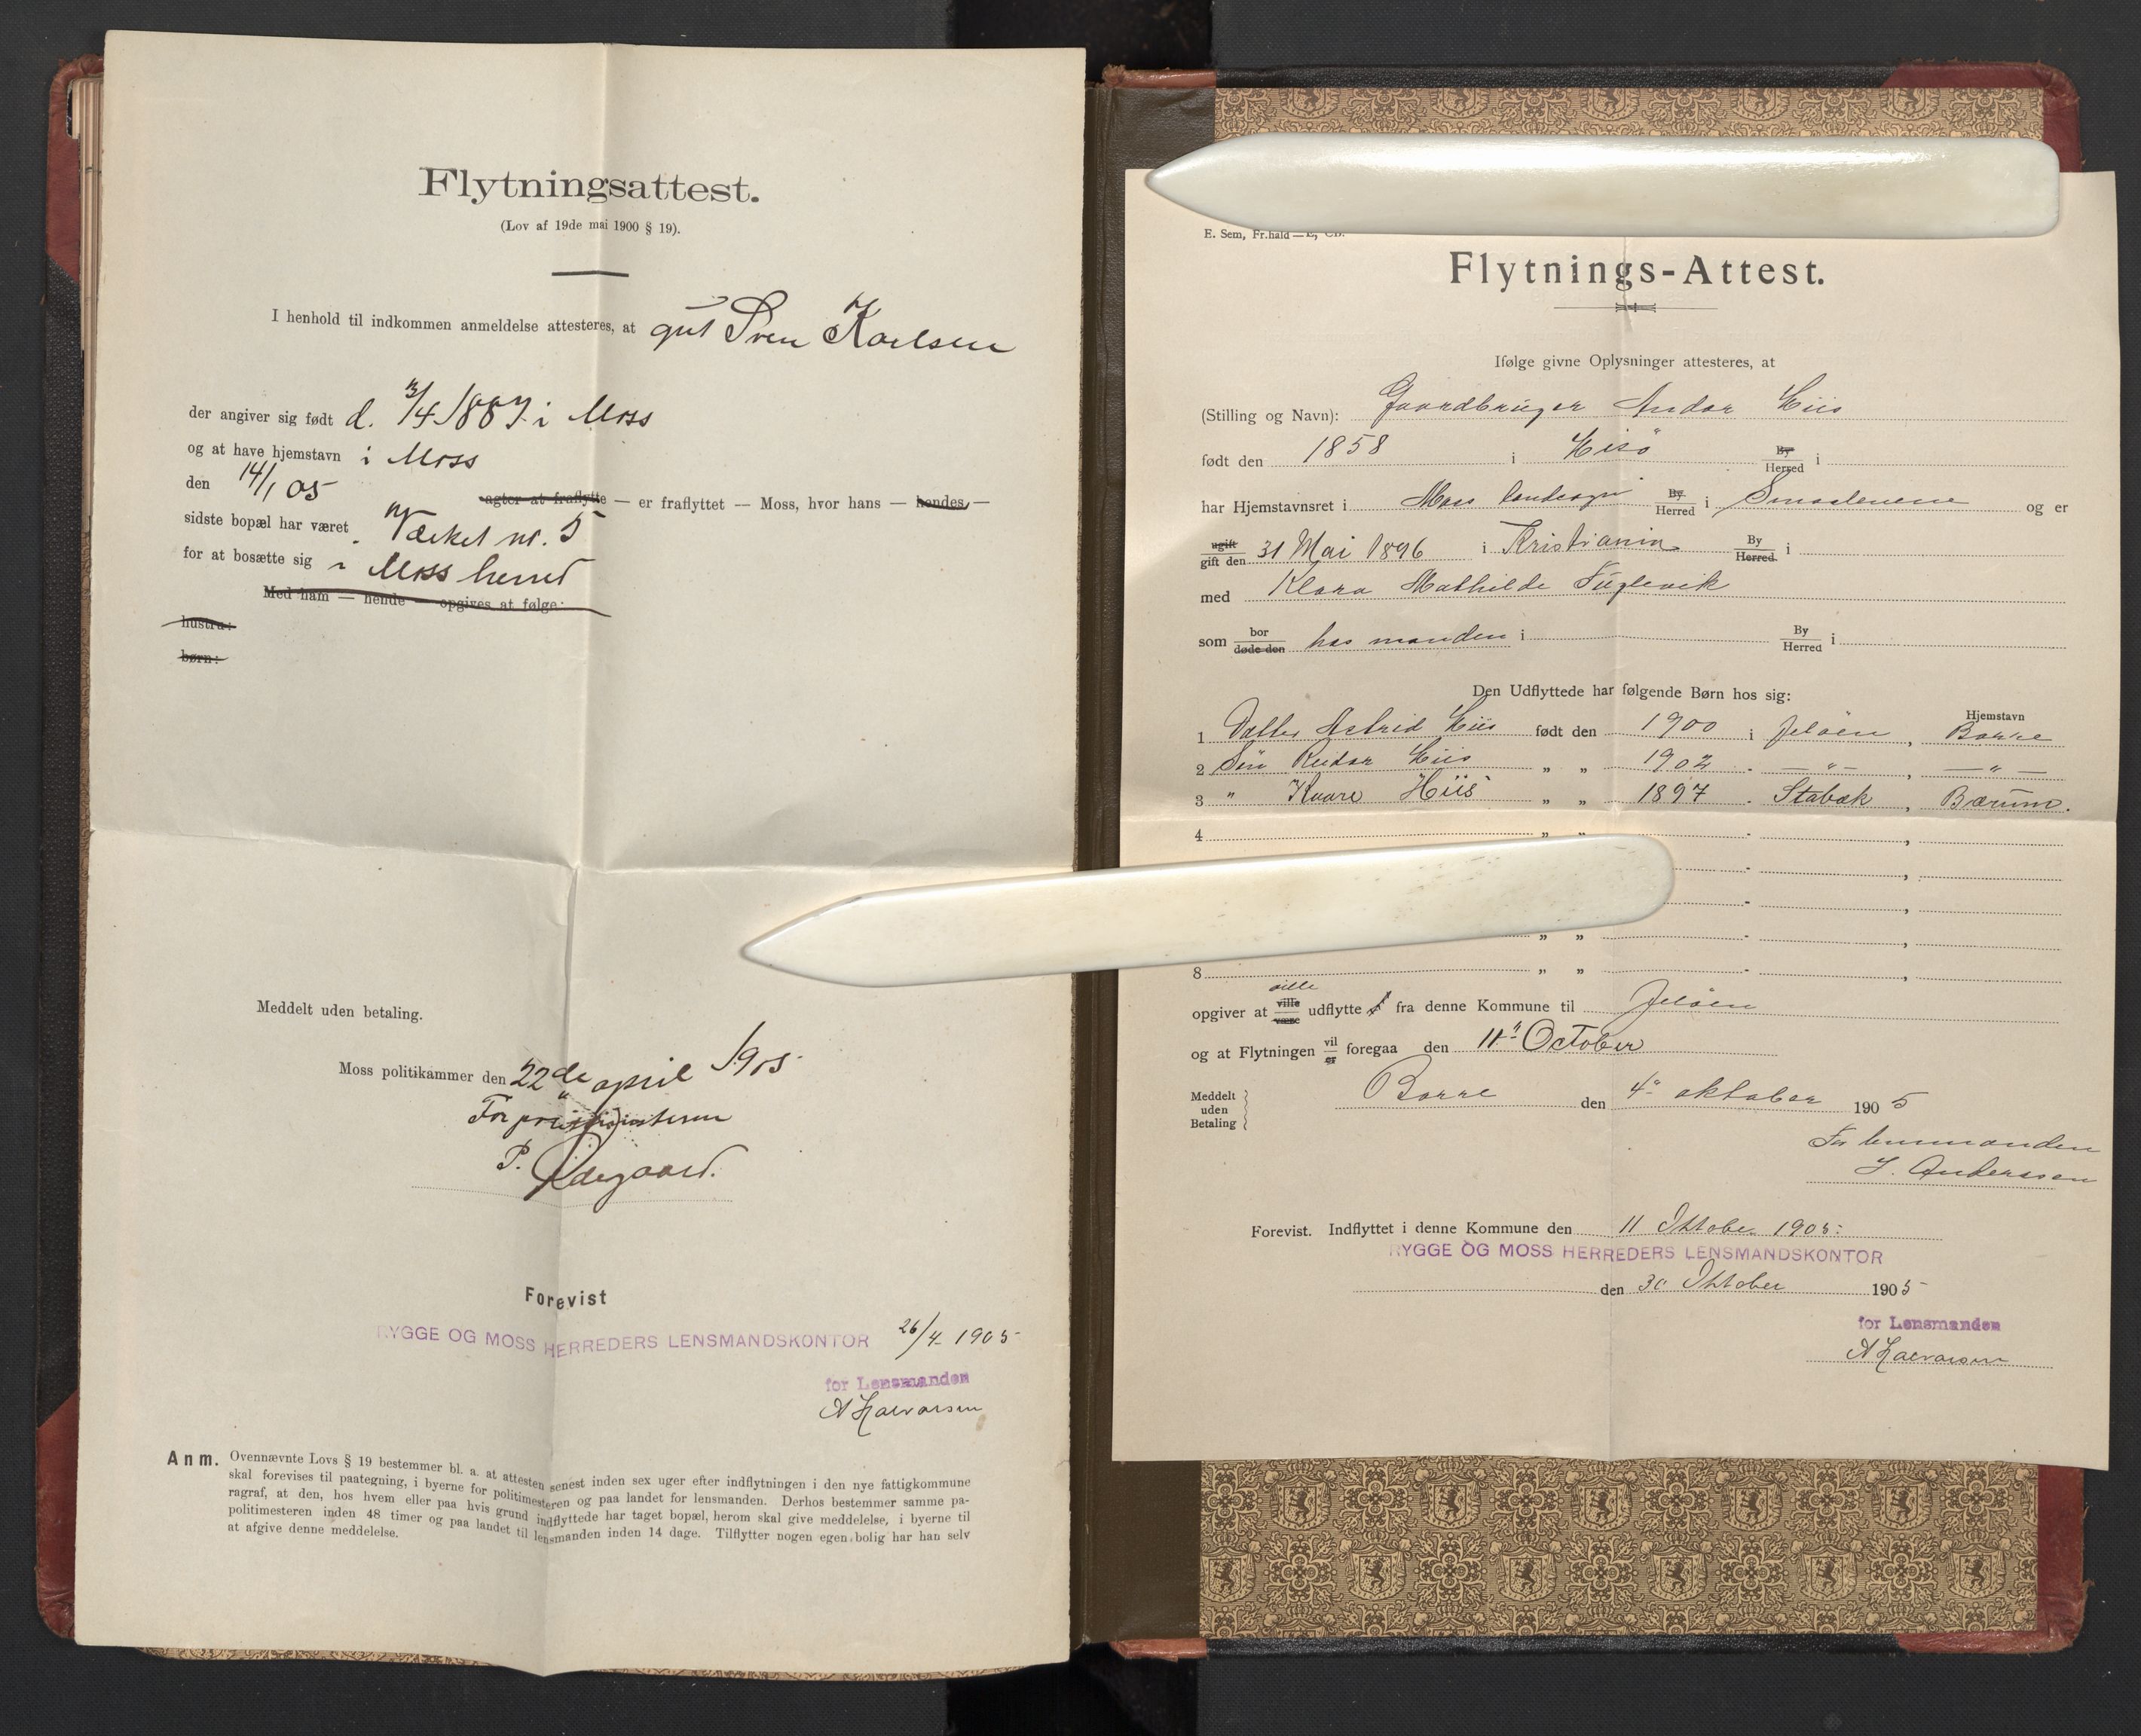 Flytningsattest.
(Lov af 19de mai 1900 § 19).
I henhold til indkommen anmeldelse attesteres, at gut Sven Karlsen
der angiver sig født d. 3/4 1887 i Moss
og at have hjemstavn i Moss
den 14/1 05 agter at fraflytte — er fraflyttet — Moss, hvor hans — hendes, —
sidste bopæl har været Værket nr. 5
for at bosætte sig i Moss herred
Med ham — hende — opgives at følge:
hustru:
børn:
Meddelt uden betaling.
Moss politikammer den 22de april 1905
For politimesteren
P. Ødegaard.
Forevist
RYGGE OG MOSS HERREDERS LENSMANDSKONTOR 26/4 1905
for Lensmanden
A Halvorsen
Anm. Ovennævnte Lovs § 19 bestemmer bl. a. at attesten senest inden sex uger efter indflytningen i den nye fattigkommune
skal forevises til paategning, i byerne for politimesteren og paa landet for lensmanden. Derhos bestemmer samme pa-
ragraf, at den, hos hvem eller paa hvis grund indflyttede har taget bopæl, herom skal give meddelelse, i byerne til
politimesteren inden 48 timer og paa landet til lensmanden inden 14 dage. Tilflytter nogen egen bolig har han selv
at afgive denne meddelelse.
E. Sem, Fr.hald — E,
Flytnings-Attest.
Ifølge givne Oplysninger attesteres, at
(Stilling og Navn): Gaardbruger Andor Hiis
født den 1858 i Hisö By Herred i
har Hjemstavnsret i Moss landsogn By Herred i Smaalenene og er
ugift gift den 31 Mai 1896 i Kristiania By Herred i
med Klara Mathilde Fuglevik
som bor døde den hos manden i By Herred i
Den Udflyttede har følgende Børn hos sig:
Hjemstavn
1 Datter Astrid Hiis født den 1900 i Jeløen, Borre
2 Søn Reidar Hiis „ „ 1902 - — " —, — " —
3 " Kaare Hiis „ „ 1897 - Stabæk, Bærum.
4 „ „ - ,
- ,
- ,
„ „ - ,
8 „ „ - ,
opgiver at ville ville være udflytte t fra denne Kommune til Jeløen
og at Flytningen vil er foregaa den 11" October
Meddelt uden Betaling Borre den 4" oktober 1905
For lensmanden
J. Anderssen
Forevist. Indflyttet i denne Kommune den 11 Oktober 1905.
RYGGE OG MOSS HERREDERS LENSMANDSKONTOR
den 30 Oktober 1905
for Lensmanden
A Halvorsen